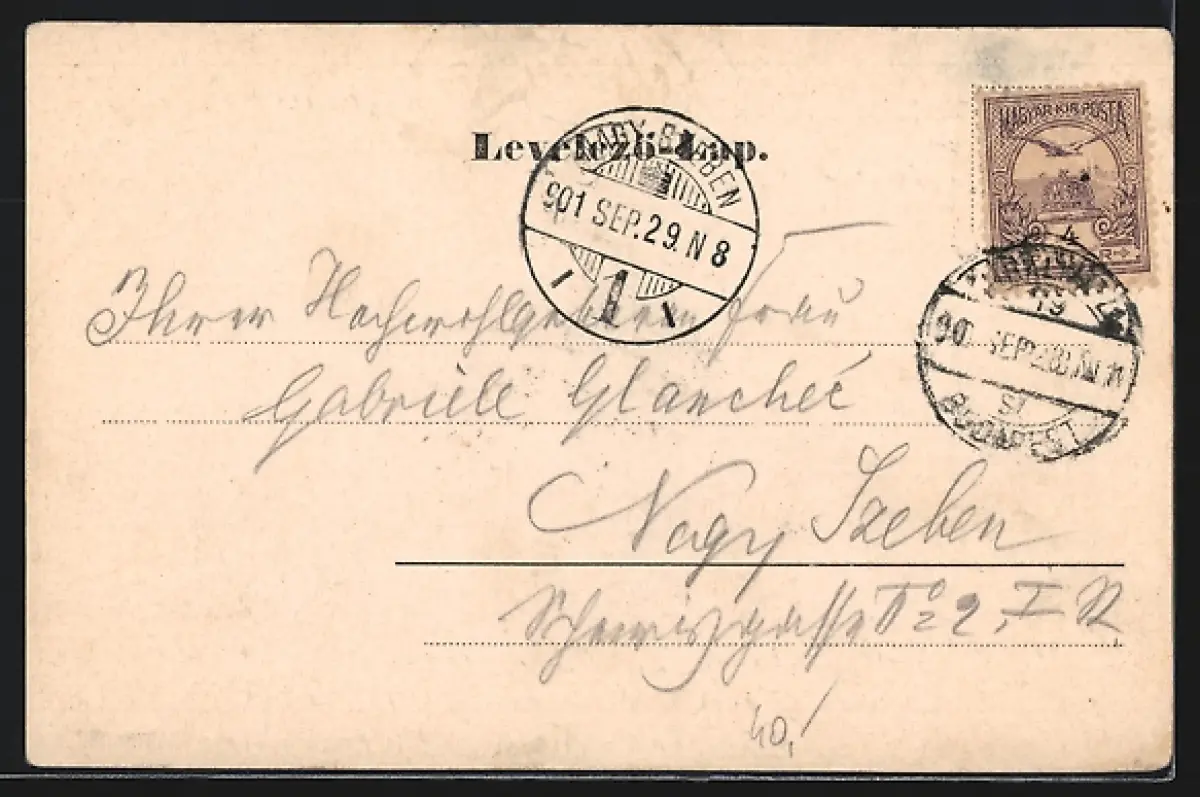 Levelező-Lap.
MAGYAR KIR. POSTA
NAGY-SZEBEN
901 SEP. 29. N 8
1
BUDAPEST
Ihrer Hochwohlgeboren Frau
Gabriele
Nagy Szeben
No 2, I
40,